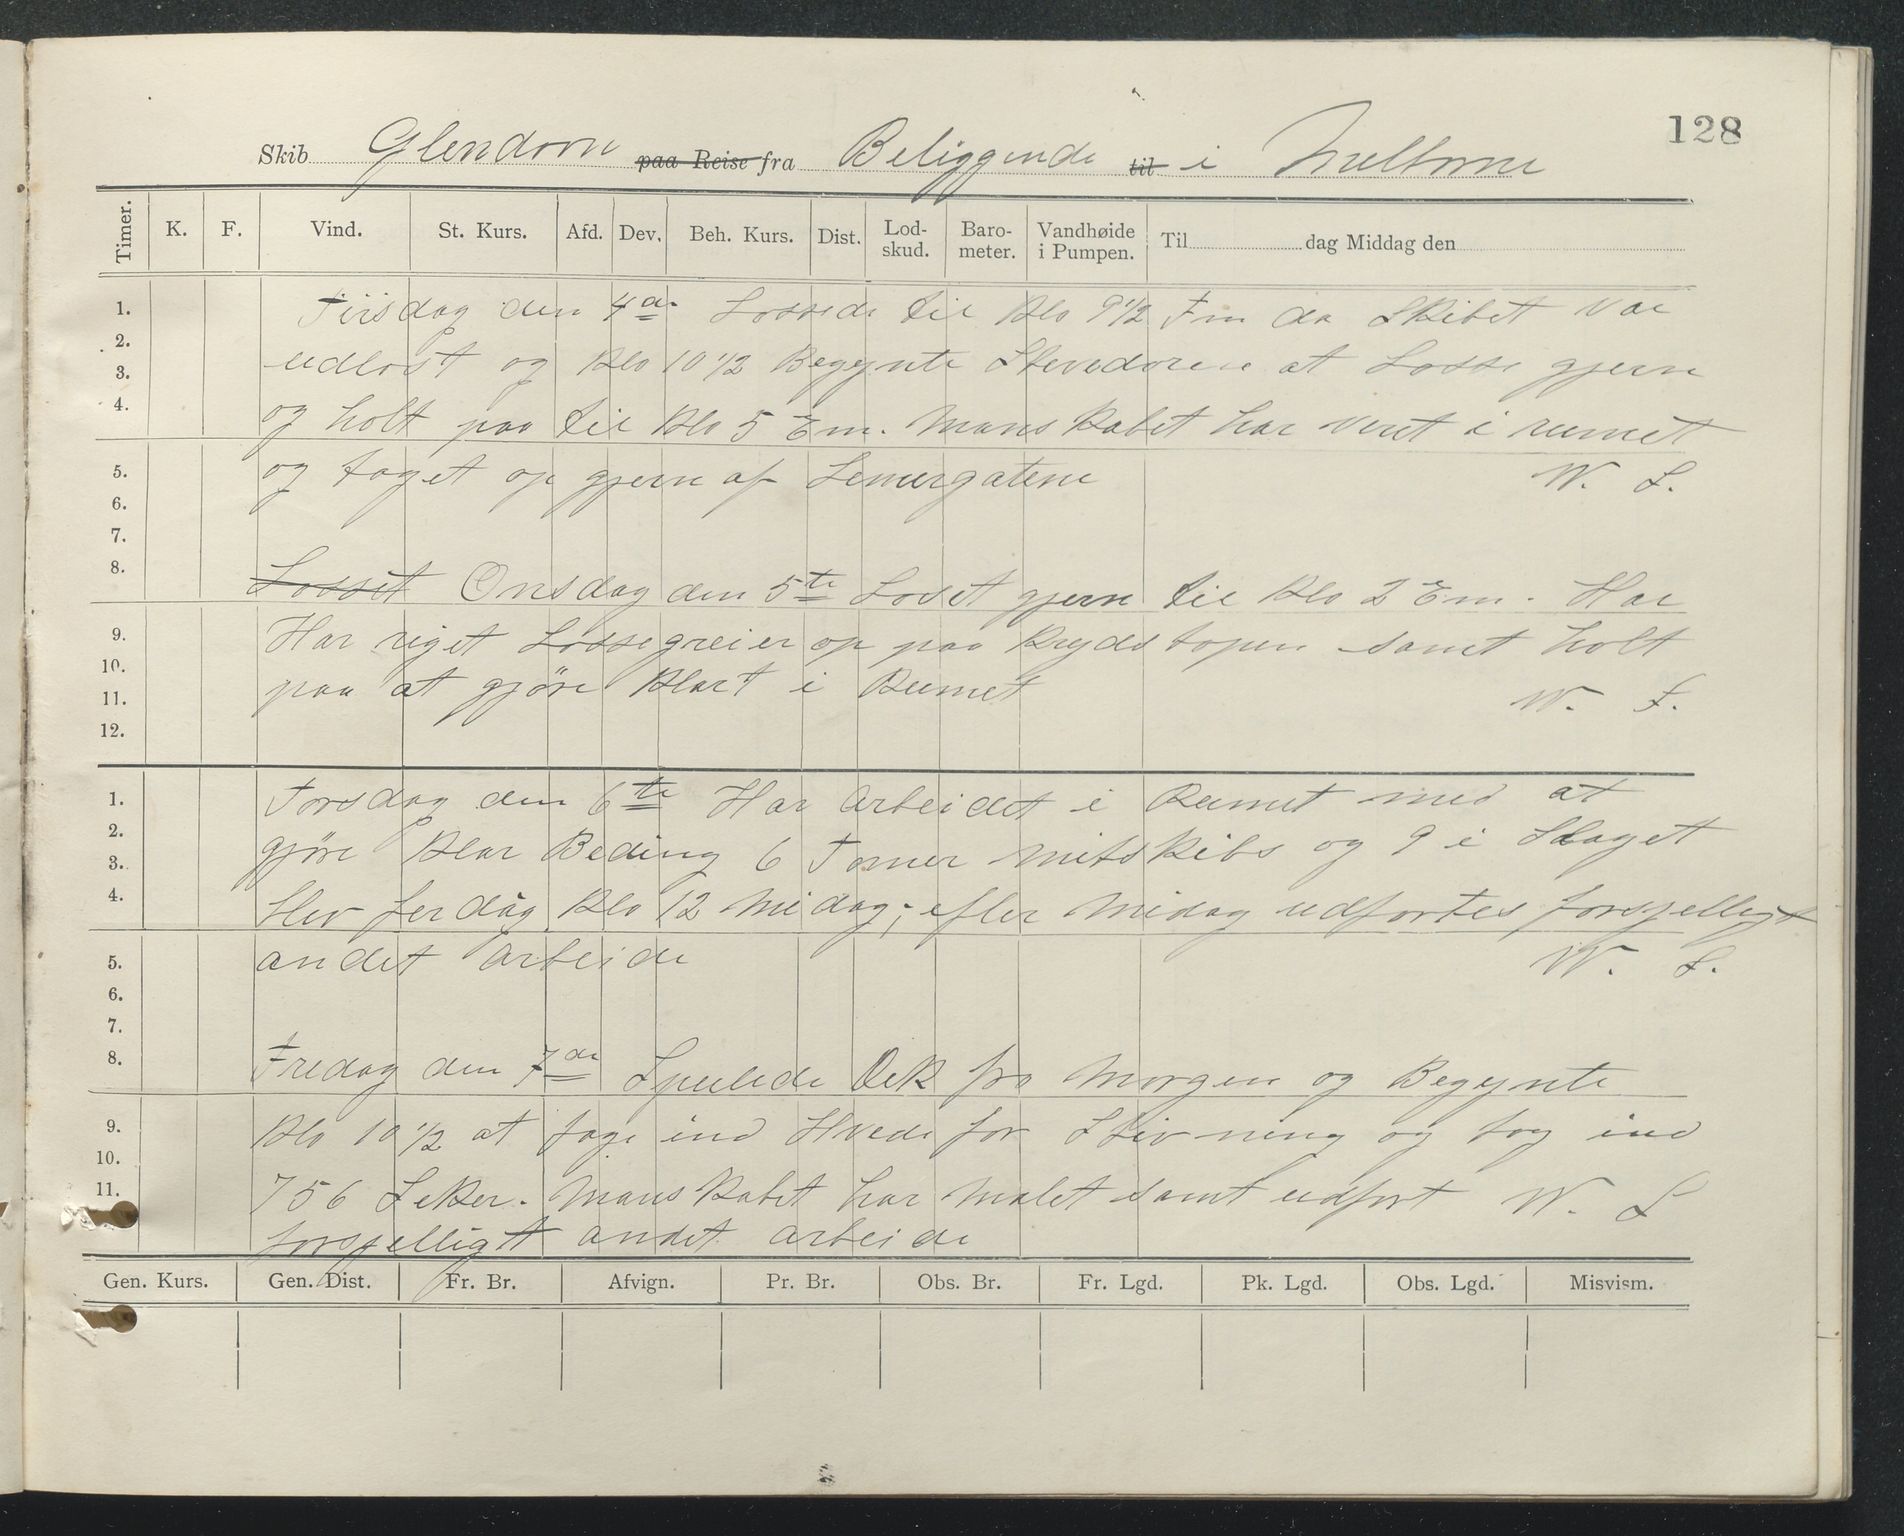 128
Skib Glendoon paa Reise fra Beliggende til i Melbrne
Timer. K. F. Vind. St. Kurs. Afd. Dev. Beh. Kurs. Dist. Lod-skud. Baro-meter. Vandhøide i Pumpen. Til dag Middag den
1. Tiisdag den 4de Lossede til Klo 9 1/2 Fm da Skibet var
2.
udlost og Klo 10 1/2 Begynte Stevedorene at Losse gjern
3.
4. og holt paa til Klo 5 Em. Manskabet har veret i rumet
5. og taget op gjern af Lemurgatene W. L.
6.
7.
8. Losset Onsdag den 5te Loset gjern til Klo 2 Em. Har
9. Har riget Lossegreier op paa Kryds topen samt holt
10.
11. paa at gjöre Klart i Rumet W. F.
12.
1. Torsdag den 6te Har Arbeidet i Rumet med at
2.
3. gjöre Klar Beding 6 Tomer mitskibs og 9 i Slaget
4. blev ferdig Klo 12 Midag; efter Midag udfortes forsjelligt
5. andet Arbeide W. L.
6.
7.
8. Fredag den 7de Spulede Dek fra Morgen og Begynte
9. Klo 10 1/2 at tage ind Hvede for Stivning og tog ind
10.
11. 756 Seker. Manskabet har Malet samt udfort W. L
forsjelligt andet arbeide
Gen. Kurs. Gen. Dist. Fr. Br. Afvign. Pr. Br. Obs. Br. Fr. Lgd. Pk. Lgd. Obs. Lgd. Misvism.